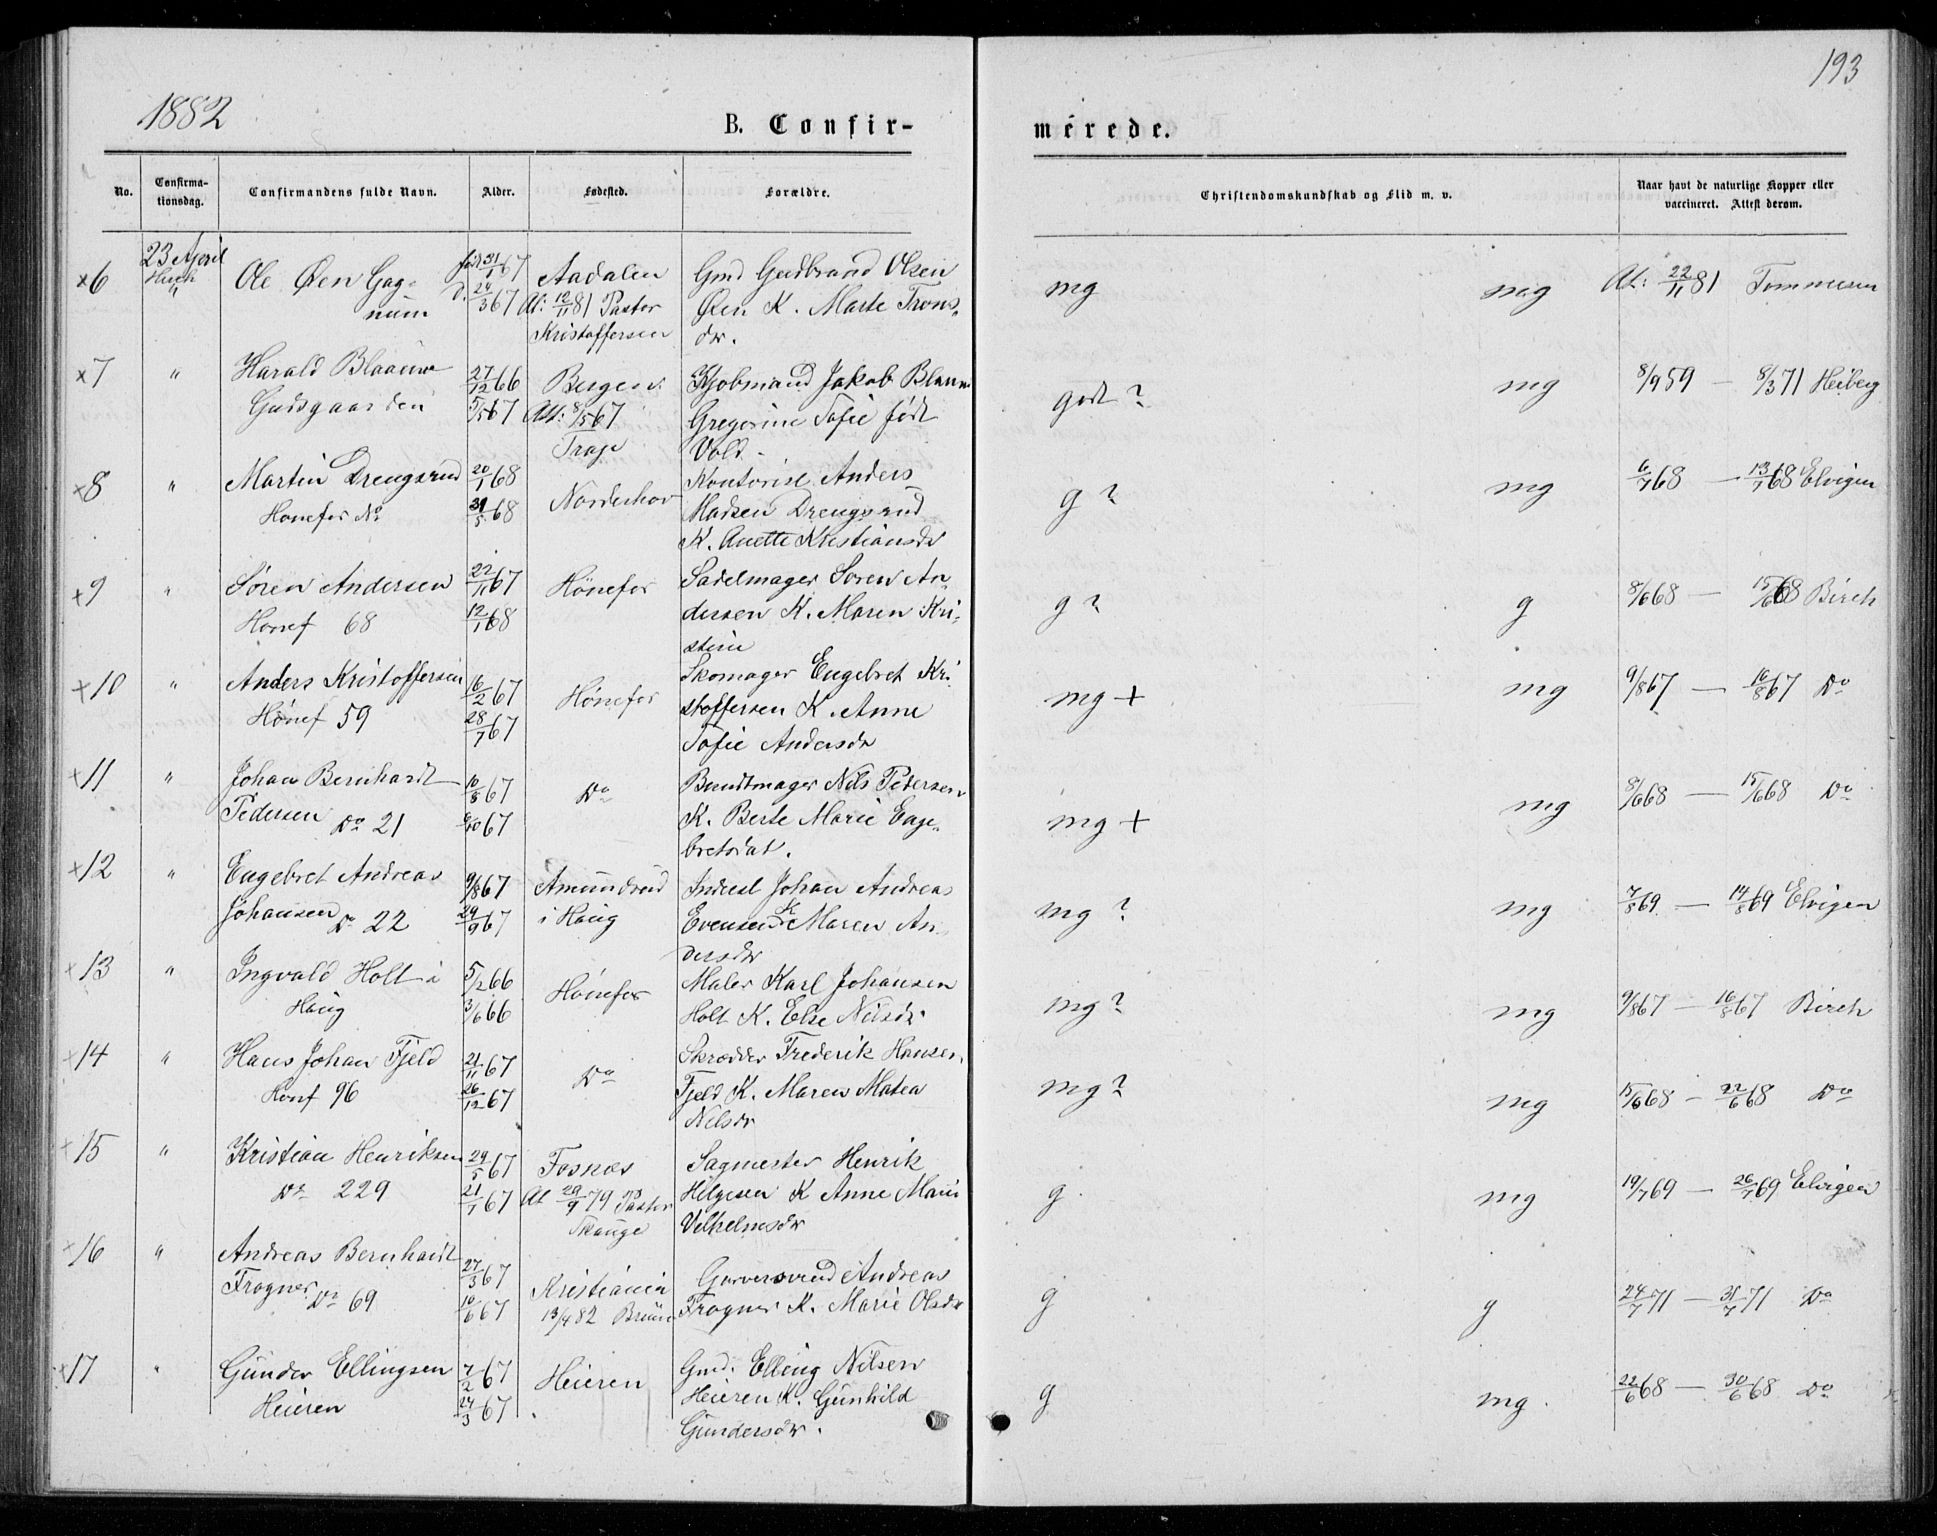 1882
B. Confir-
mérede.
193
No.
Confirma-
tionsdag.
Confirmandens fulde Navn.
Alder.
Fødested.
Forældre.
Christendomskundskab og Flid m. v.
Naar havt de naturlige Kopper eller
vaccineret. Attest derom.
23 April
x6 " Ole Øen Gag- 31/1 67 Aadalen Gmd Gudbrand Olsen mg mg At: 22/11 81 Tommesen
num D. 24/3 67 At: 12/11 81 Pastor Øen K. Marte Trons-
Kristoffersen dr.
x7 " Harald Blaauw 27/12 66 Bergen Kjøbmand Jakob Blaauw godt? mg 8/9 59 — 8/3 71 Heiberg
Gudsgaarden 5/5 67 Att: 8/5 67 Gregorine Sofie født
Vold
x8 " Martin Drengsrud 20/1 68 Norderhov Kontorist Anders g? mg 6/7 68 — 13/7 68 Elvigen
Honefos No 31/5 68 Madsen Drengsrud
K. Anette Kristiansdr
x9 " Søren Andersen 22/11 67 Hønefos Sadelmager Soren An- g? g 8/6 68 — 15/6 68 Birch
Honef 68 12/1 68 dersen K. Maren Kri-
stine
x10 " Anders Kristoffersen 16/2 67 Hønefos Skomager Engebret Kri- mg + mg 9/8 67 — 16/8 67 Do
Hønef 59 28/7 67 stoffersen K. Anne
Sofie Andersdr
x11 " Johan Bernhardt 10/8 67 Do Bundtmager Nils Pedersen mg + mg 8/6 68 — 15/6 68 Do
Pedersen Do 21 6/10 67 K. Berte Marie Enge-
bretsdat.
x12 " Engebret Andreas 9/8 67 Amundrud Inderst Johan Andreas mg? mg 7/8 69 — 14/8 69 Elvigen
Johansen Do 22 29/9 67 i Haug Evensen K Maren An-
dersdr
x13 " Ingvald Holt i 5/2 66 Hønefos Maler Karl Johansen mg? mg 9/8 67 — 16/8 67 Birch
Haug 3/6 66 Holt K. Else Nilsdr
x14 " Hans Johan Fjeld 21/11 67 Do Skrædder Frederik Hansen mg? mg 15/6 68 — 22/6 68 Do
Honf 96 26/12 67 Fjeld K. Maren Matea
Nelsdr
x15 " Kristian Henriksen 29/5 67 Fosnæs Sagmester Henrik g mg 19/7 69 — 26/7 69 Elvigen
Do 229 21/7 67 At 20/9 79 Pastor Helgesen K Anne Marie
Skauge Vilhelmsdr
x16 " Andreas Bernhardt 27/3 67 Kristiania Garversvend Andreas g g 24/7 71 — 31/7 71 Do
Frogner Do 69 10/6 67 13/4 82 Bruun Frogner K. Marie Olsdr
x17 " Gunder Ellingsen 7/2 67 Heieren Gmd. Elling Nilsen g mg. 22/6 68 — 30/6 68 Do
Heieren 24/3 67 Heieren K. Gunhild
Gundersdr.